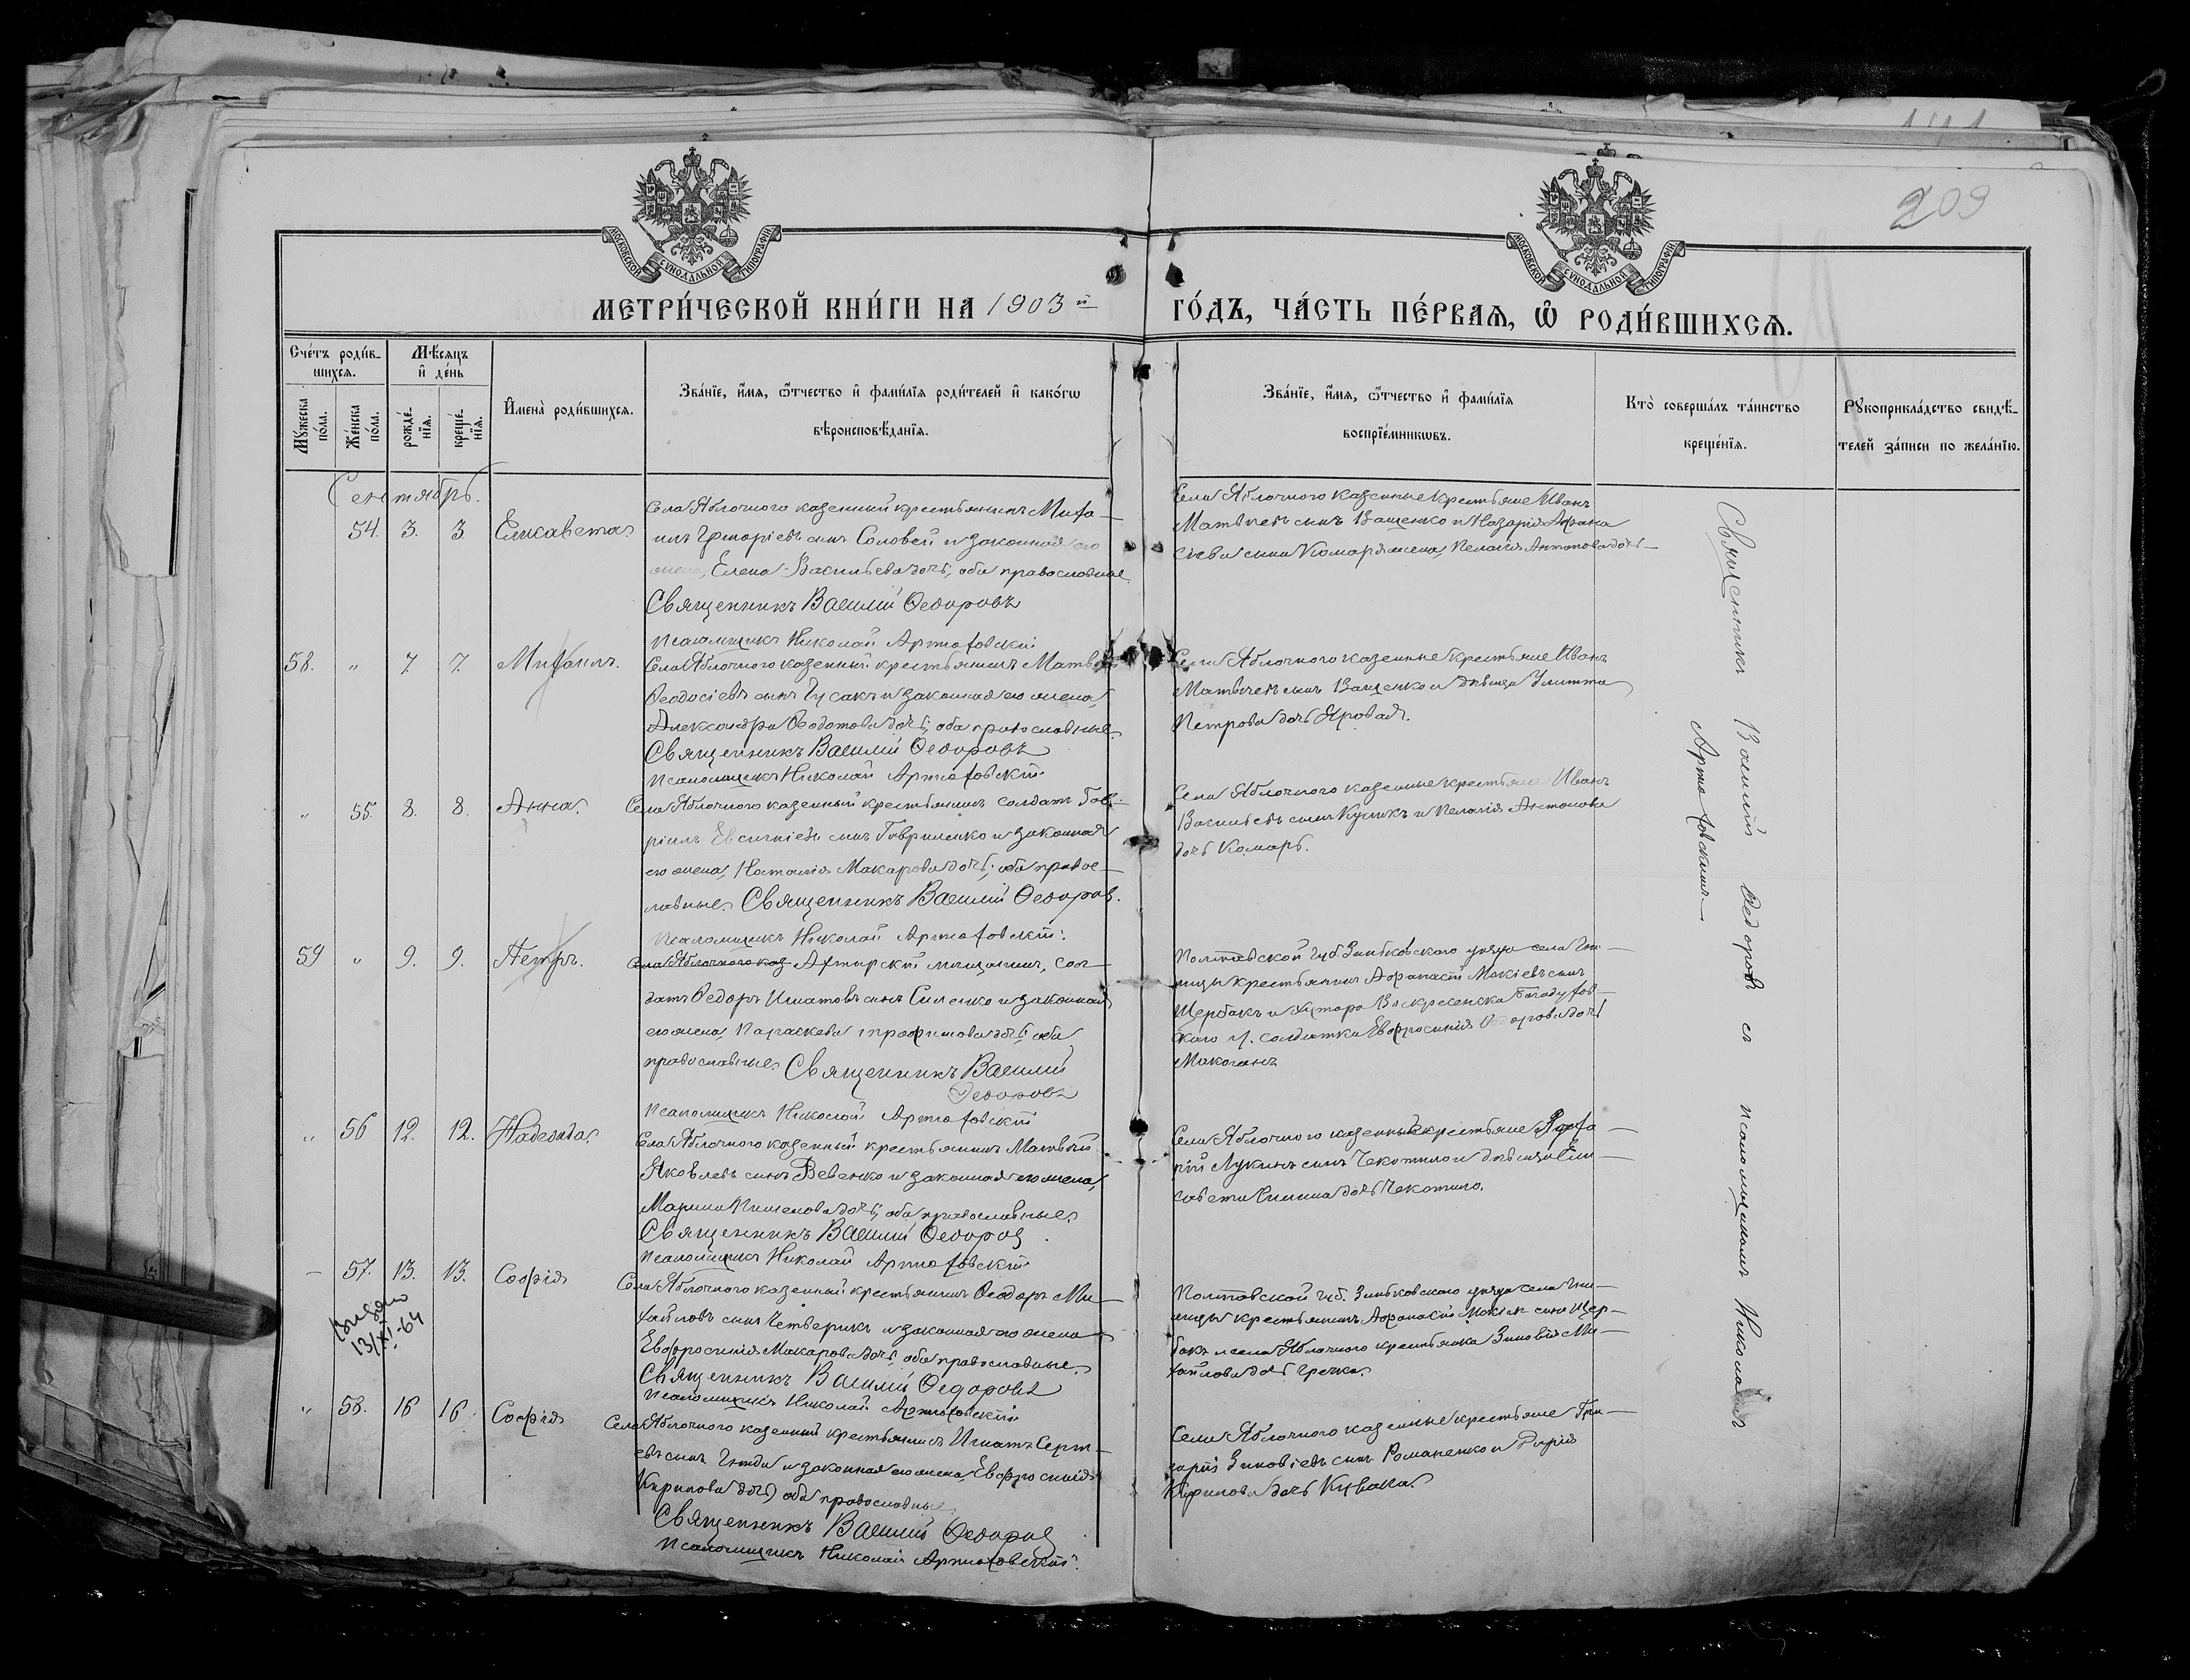 141
209
МОСКОВСКОЙ СѴНОДАЛЬНОЙ ТИПОГРАФІИ
МОСКОВСКОЙ СѴНОДАЛЬНОЙ ТИПОГРАФІИ
МЕТРИ́ЧЕСКОЙ КНИ́ГИ НА 1903й ГО́ДЪ, ЧА́СТЬ ПЕ́РВАЯ, Ѡ РОДИ́ВШИХСЯ.
Сче́тъ роди́в-
шихся.
Мѣ́сяцъ
и҆ де́нь
Мꙋ́жеска по́ла.
Же́нска по́ла.
рожде́нїя.
креще́нїя.
И҆мена̀ роди́вшихся.
Зва́нїе, и҆́мя, ѻ҆́тчество и҆ фами́лїя роди́телей и҆ како́гѡ
вѣроисповѣ́данїя.
Зва́нїе, и҆́мя, ѻ҆́тчество и҆ фами́лїя
воспрїе́мникѡвъ.
Кто̀ соверша́лъ та́инство
креще́нїя.
Рꙋкоприкла́дство свидѣ́-
телей за́писи по жела́нїю.
Сентябрь.
54. 3. 3. Елисавета.
Села Яблочного казенный крестьянинъ Миха-
илъ Григоріевъ сынъ Соловей и законная его
жена, Елена Васильева дочь, оба православные.
Священникъ Василій Ѳедоровъ
Псаломщикъ Николай Артюховскій
Села Яблочного казенные крестьяне Иванъ
Матвіевъ сынъ Ващенко и Назарія Афана
сіева сына Комаря жена, Пелагія Антонова дочь
58. " 7. 7. Михаилъ.
Села Яблочного казенный крестьянинъ Матвѣй
Ѳеодосіевъ сынъ Гусакъ и законная его жена,
Александра Ѳеодотова дочь, оба православные.
Священникъ Василій Ѳедоровъ
Псаломщикъ Николай Артюховскій
Села Яблочного казенные крестьяне Иванъ
Матвіевъ сынъ Ващенко и дѣвица Улитта
Петрова дочь Яровая.
" 55. 8. 8. Анна.
Села Яблочного казенный крестьянинъ солдатъ Гав-
ріилъ Евсигніевъ сынъ Гавриленко и законная
его жена, Наталія Макарова дочь, оба правос-
лавные. Священникъ Василій Ѳедоров.
Псаломщикъ Николай Артюховскій.
Села Яблочного казенные крестьяне Иванъ
Васильевъ сынъ и Пелагія Антонова
дочь Комарь.
59 " 9. 9. Петръ.
Села Яблочного каз Ахтырскій мѣщанинъ, сол
датъ Ѳедоръ Игнатовъ сынъ Силенко и законная
его жена, Параскева Трофимова дочь, оба
православные. Священникъ Василій
Ѳедоровъ
Псаломщикъ Николай Артюховскій
Полтавской губ. Зиньковского уѣзда села Гни-
лицы крестьянинъ Афанасій Мокіевъ сынъ
Щербакъ и хутора Воскресенска Богодухов-
скаго у. солдатка Евфросинія Ѳедорова дочь
Макоганъ
" 56 12. 12. Надежда.
Села Яблочного казенный крестьянинъ Матвѣй
Яковлевъ сынъ Вевенко и законная его жена,
Марина Пименова дочь, оба православные.
Священникъ Василій Ѳедоров
Псаломщикъ Николай Артюховскій
Села Яблочного казенные крестьяне Заха-
рій Лукинъ сынъ Чекотило и дѣвица Ели-
савета дочь Чекотило.
- 57. 13. 13. Софія
Выдано
13/XI-64
Села Яблочного казенный крестьянинъ Ѳеодоръ Ми-
хайловъ сынъ Четверикъ и законная его жена
Евфросинія Макарова дочь, оба православные.
Священникъ Василій Ѳедоровъ
Псаломщикъ Николай Артюховскій
Полтавской губ. Зиньковского уѣзда села Гни-
лицы крестьянинъ Афанасій Мокіевъ сынъ Щер-
бакъ и села Яблочного крестьянка Зиновія Ми-
хайлова дочь Гречка.
" 58. 16 16. Софія
Села Яблочного казенный крестьянинъ Игнатъ Серги-
евъ сынъ и законная его жена, Евфросинія
Кирилова дочь, оба православные
Священникъ Василій Ѳедоров
Псаломщикъ Николай Артюховскій.
Села Яблочного казенные крестьяне Гри-
горій Зиновіевъ сынъ Романенко и Дарія
Кирилова дочь
Священникъ Василій Ѳедоровъ съ псаломщикомъ Николаемъ
Артюховскимъ